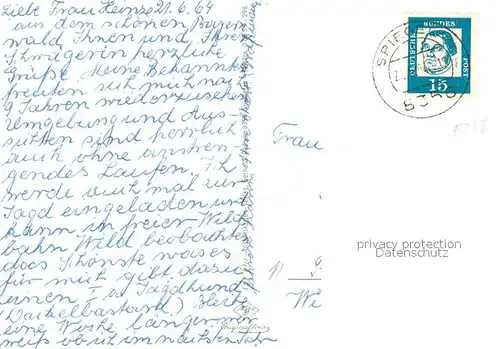 Liebe Frau Heinze 21.6.64
aus dem schönen Bayer
wald Ihnen und Ihrer
Schwägerin herzliche
Grüße. Meine Bekannten
freuten sich mich nach
9 Jahren wiederzusehen
Umgebung und Aus
sichten sind herrlich
auch ohne anstren
gendes Laufen. Ich
werde auch mal zur
Jagd eingeladen und
kann in freier Wild
bahn Wild beobachten
das Schönste was es
für mich gibt dazu
einen Jagdhund
(Dackelbastard.)
eine Woche länger wer
weiß ob ich im nächsten Jahr
DEUTSCHE
BUNDES
POST
15
SPIEG
Frau
privacy protection
Datenschutz
11
Wi